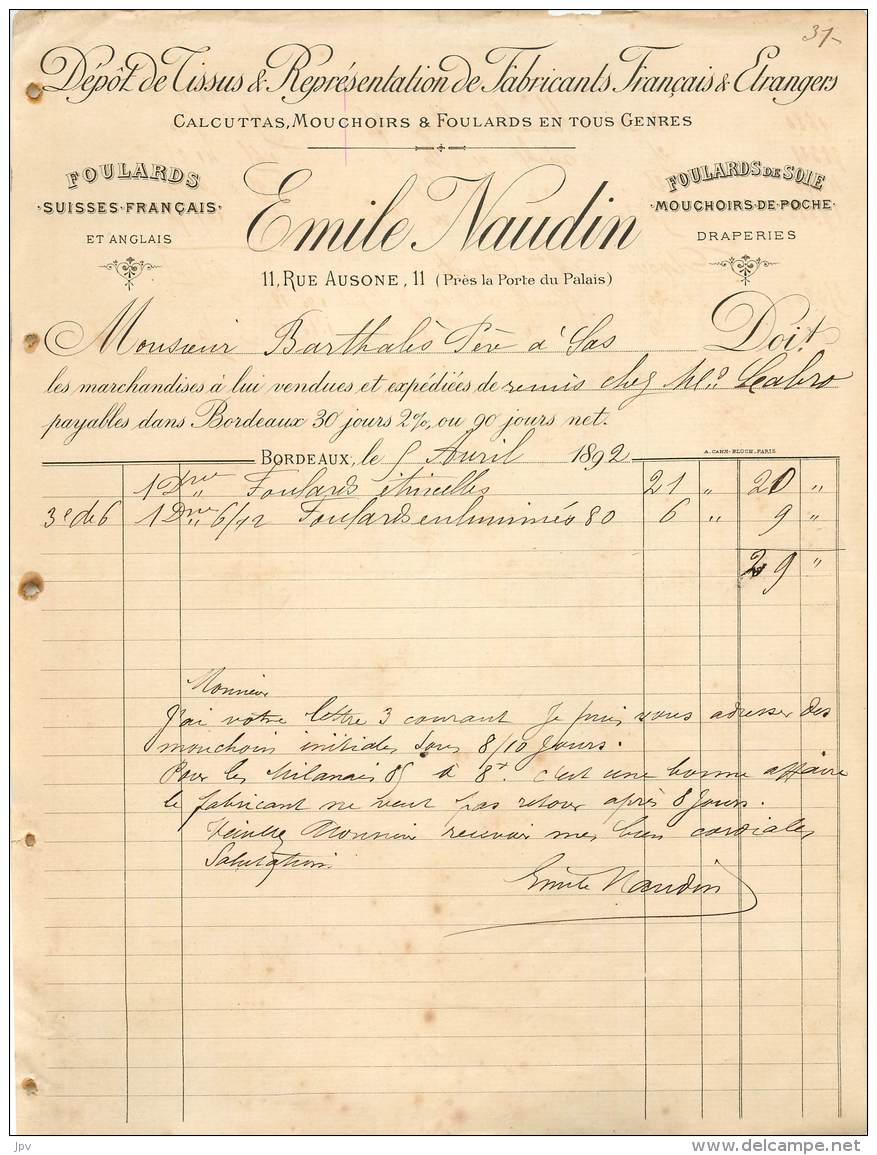 37-
Dépôt de Tissus & Représentation de Fabricants Français & Etrangers
CALCUTTAS, MOUCHOIRS & FOULARDS EN TOUS GENRES
FOULARDS
SUISSES-FRANÇAIS
ET ANGLAIS
Emile Naudin
FOULARDS DE SOIE
MOUCHOIRS-DE-POCHE
DRAPERIES
11, RUE AUSONE, 11 (Près la Porte du Palais)
Monsieur Barthalès Père à Sas Doit
les marchandises à lui vendues et expédiées de remis chez Mr Leabro
payables dans Bordeaux 30 jours 2%, ou 90 jours net.
A. CAHN-BLOCH, PARIS
BORDEAUX, le 5 Avril 1892
1 Dne Foulards étincelles 21 " 20 "
3e de 6 1 Dne 6/12 Foulards enluminés 80 6 " 9 "
29 "
Monsieur
J'ai votre lettre 3 courant Je puis vous adresser des
mouchoirs initiales sous 8/10 Jours.
Pour les Milanais 85 à 8f. c'est une bonne affaire
le fabricant ne veut pas retour après 8 Jours.
Veuillez Monsieur recevoir mes bien cordiales
Salutations
Emile Naudin
jpv
www.delcampe.net